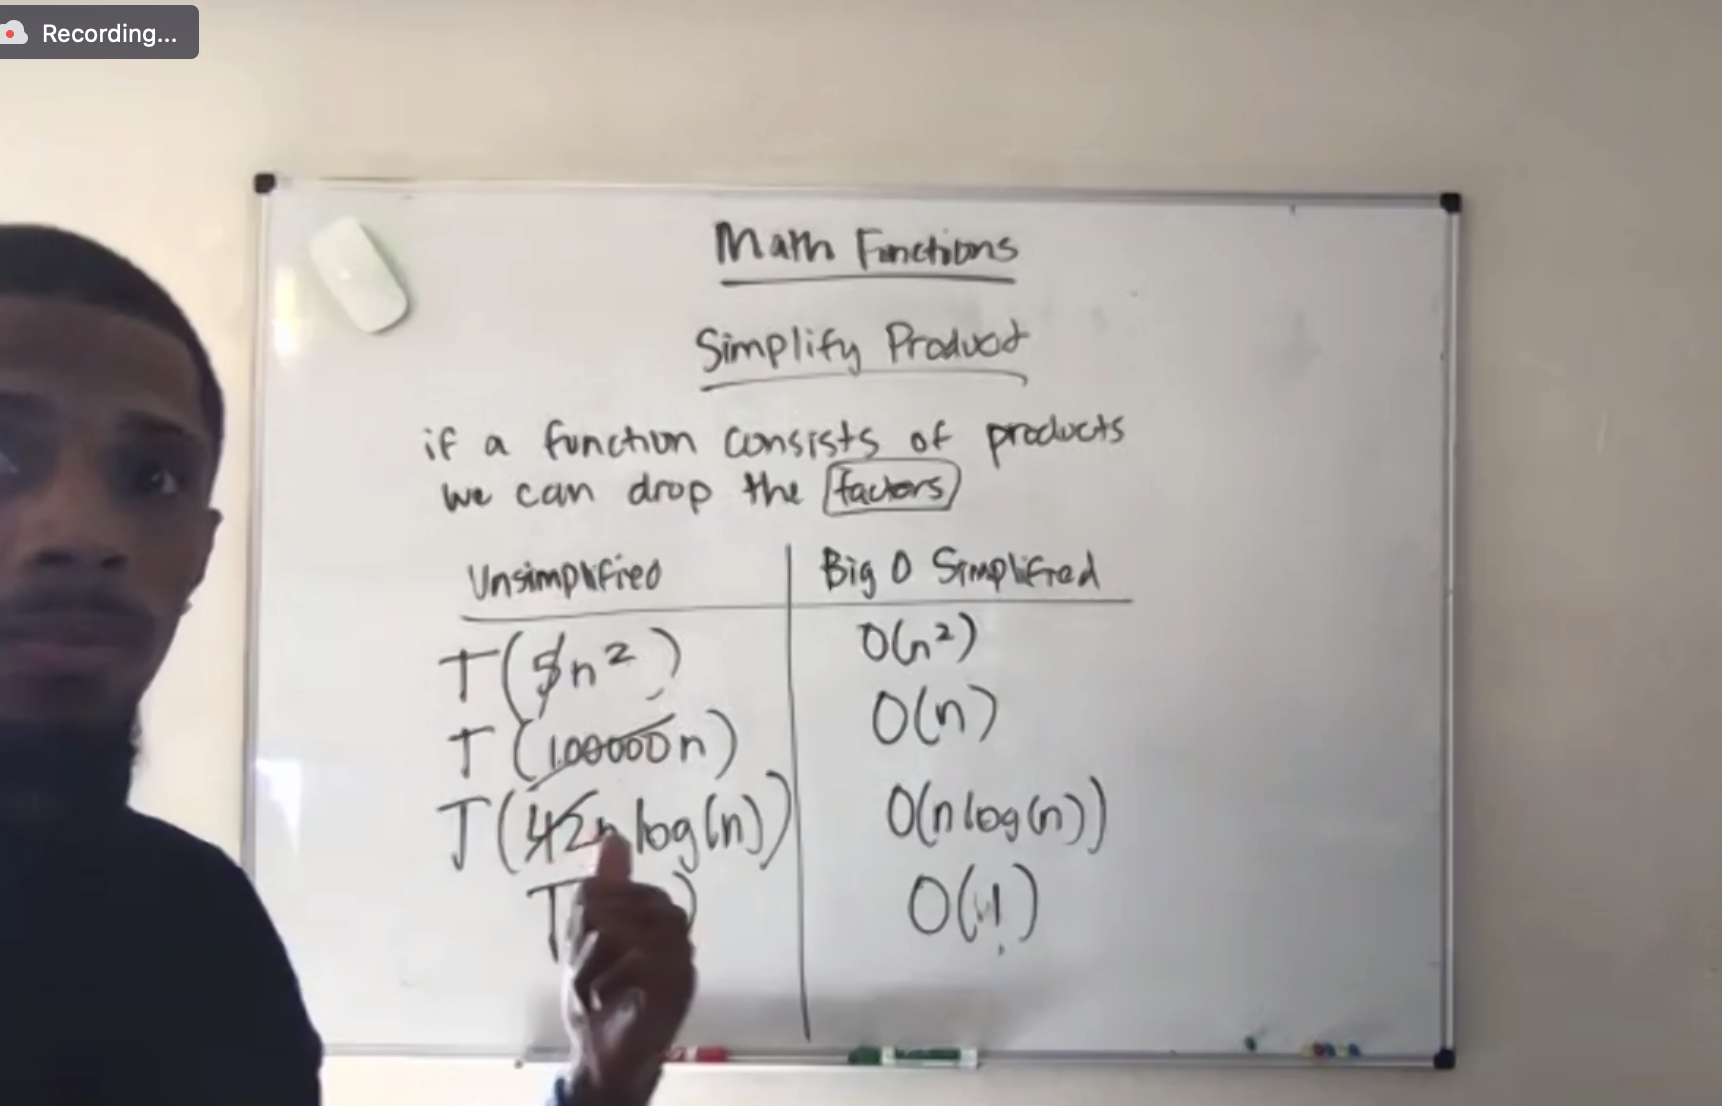 Recording...
Math Functions
Simplify Product
if a function consists of products
we can drop the factors
Unsimplified
Big O Simplified
T(5n²)
O(n²)
T(100000n)
O(n)
T(42n log(n))
O(n log(n))
T )
O( ! )